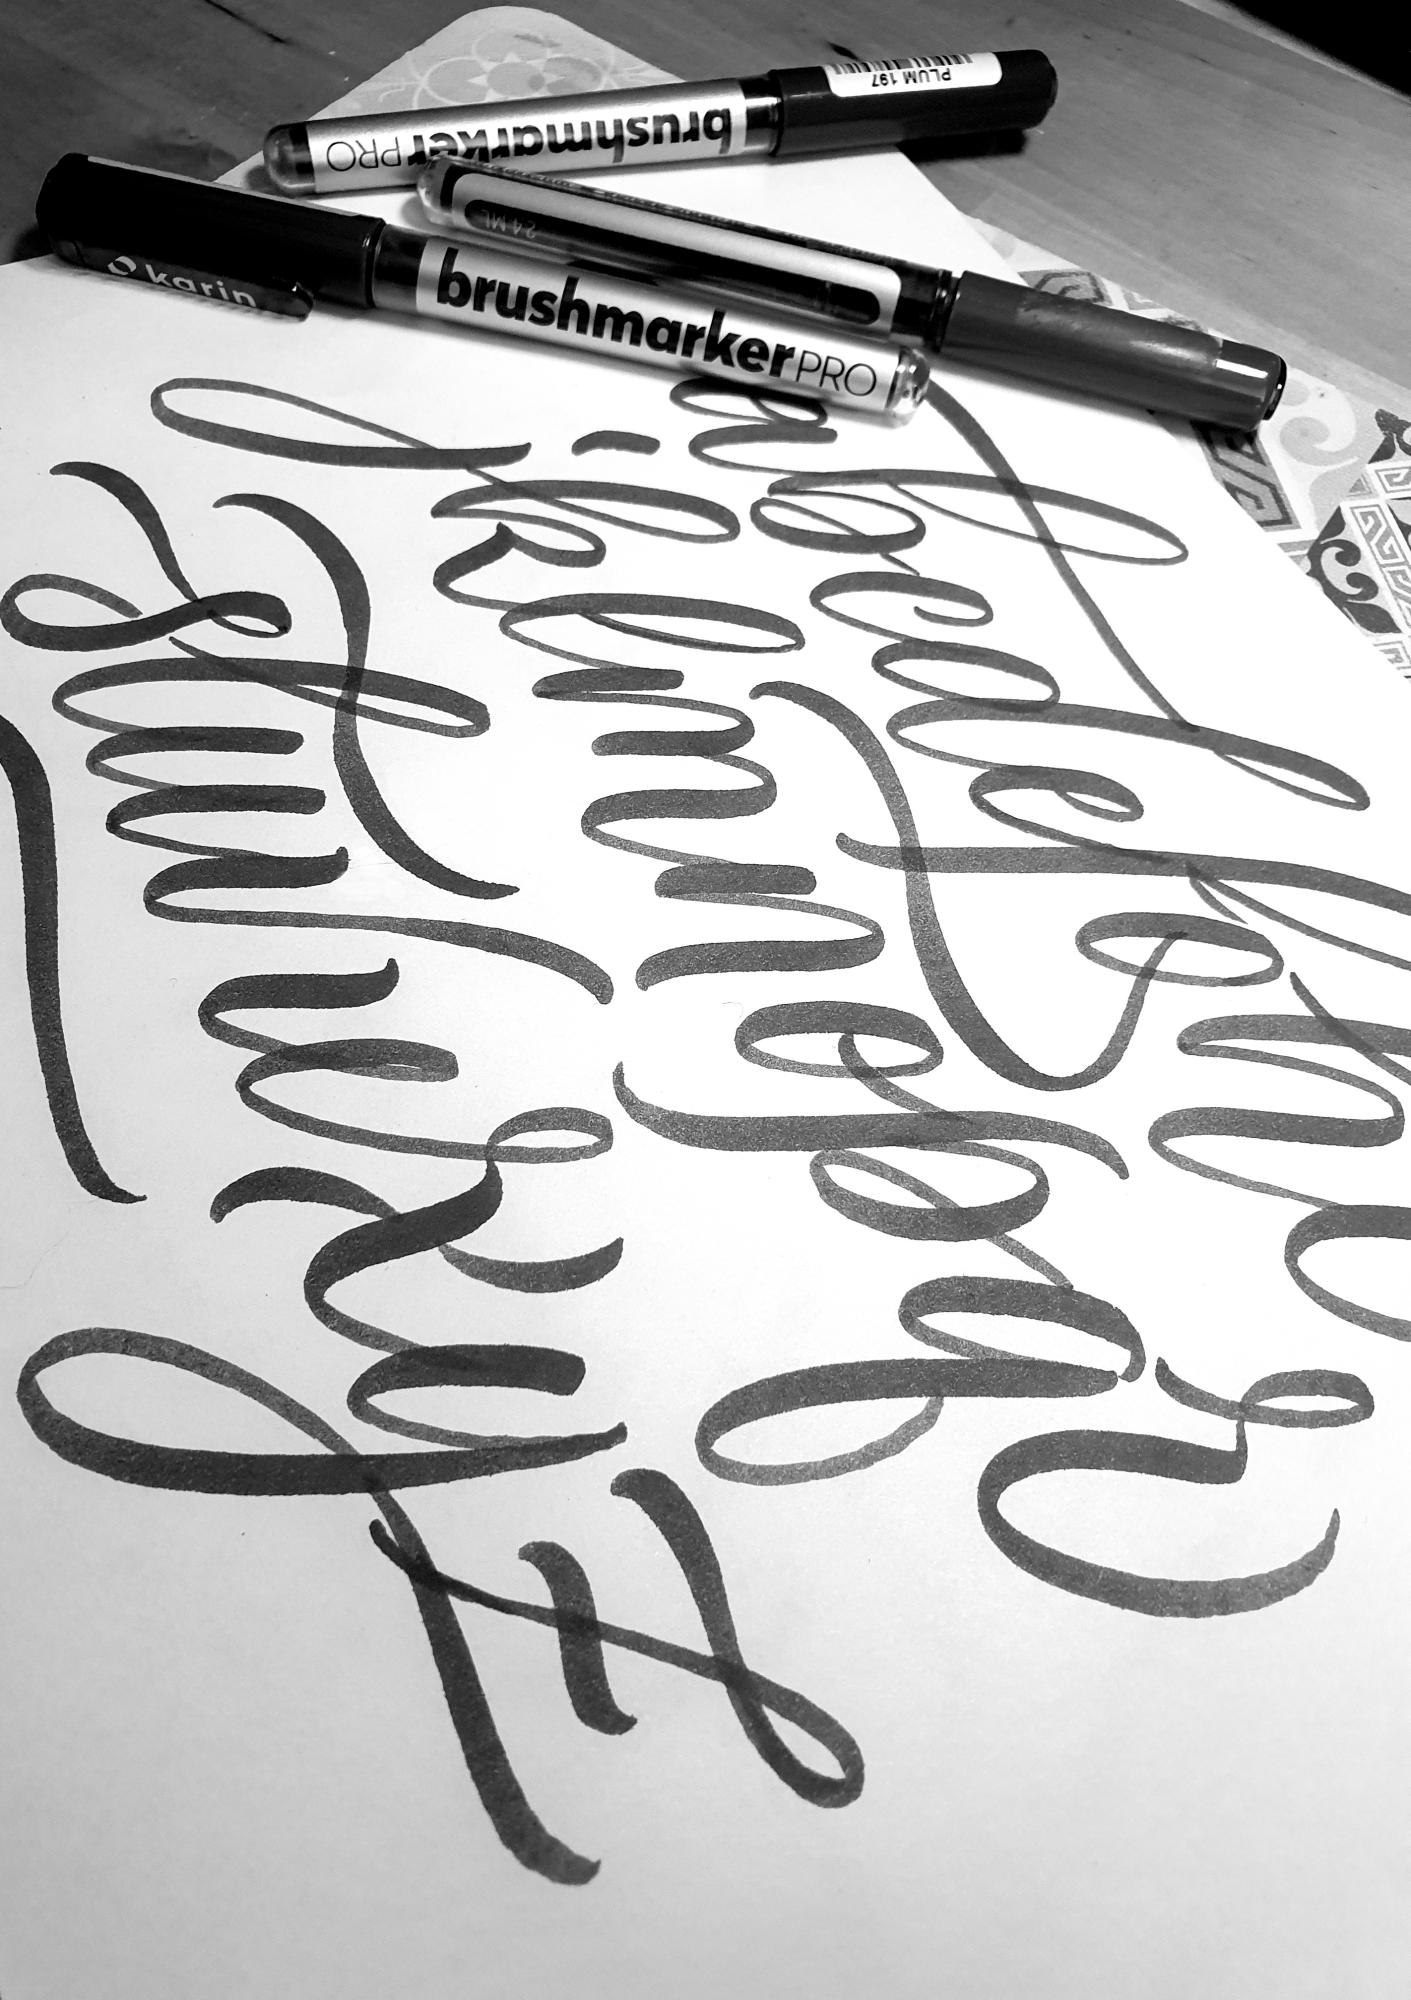 PLUM 197
brushmarkerPRO
24 ML
karin
brushmarkerPRO
a b c d e f g h
j k l m n o p q r
s t u v w x y z